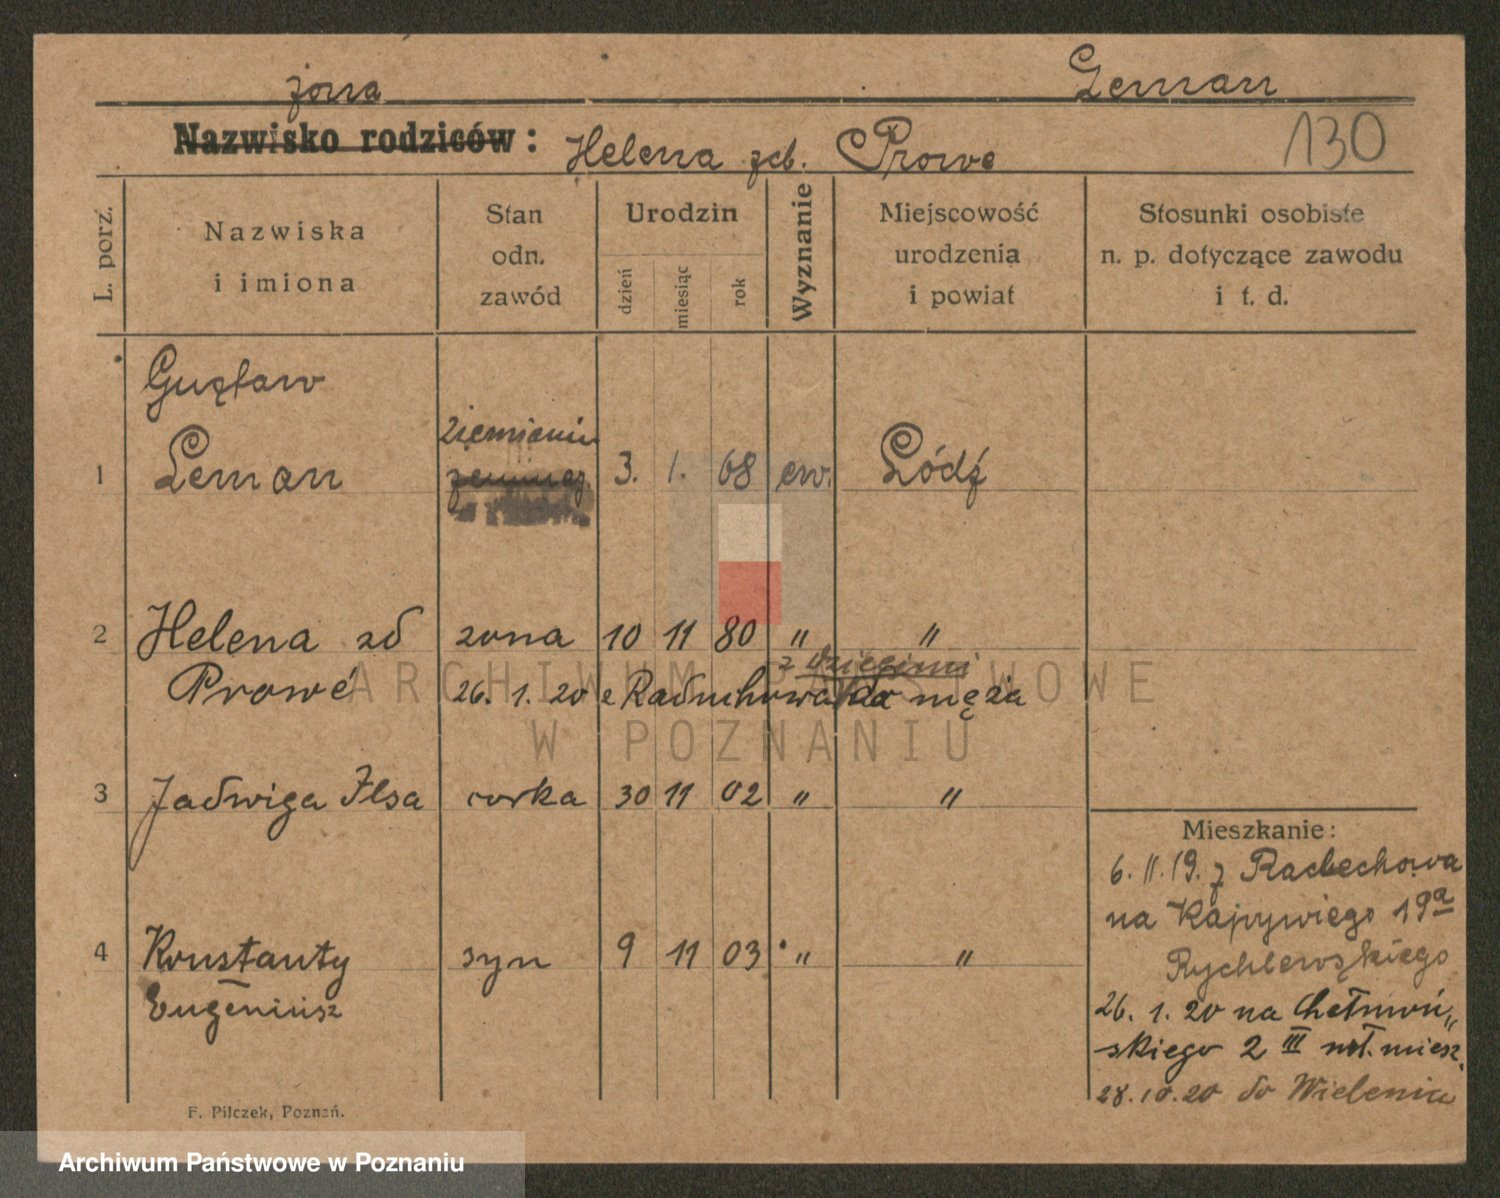 żona Leman
Nazwisko rodziców: Helena zeb. Prowe 130
L. porz.
Nazwiska
i imiona
Stan
odn.
zawód
Urodzin
dzień
miesiąc
rok
Wyznanie
Miejscowość
urodzenia
i powiat
Stosunki osobiste
n. p. dotyczące zawodu
i t. d.
Gustaw
ziemianin
1 Leman 3. 1. 68 ew. Łódź
2 Helena zd żona 10 11 80 " "
z dziećmi
Prowe 26. 1. 20 z Raduchowa do męża
3 Jadwiga Ilsa córka 30 11 02 " "
Mieszkanie:
6. II. 19. z
na 19a
4 Konstanty syn 9 11 03 " "
Rychlewskiego
Eugeniusz
26. 1. 20 na Chełmoń„
skiego 2 III miesz.
28. 10. 20 do Wielenia
F. Pilczek, Poznań.
ARCHIWUM PAŃSTWOWE
W POZNANIU
Archiwum Państwowe w Poznaniu